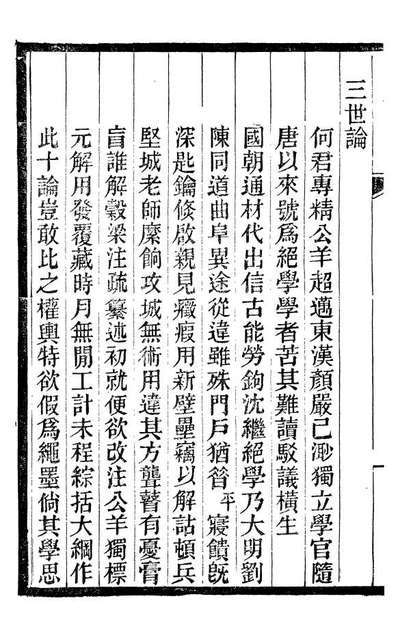 三世論
何君專精公羊超邁東漢顏嚴已渺獨立學官隨
唐以來號爲絕學學者苦其難讀駁議橫生
國朝通材代出信古能勞鉤沈繼絕學乃大明劉
陳同道曲阜異途從違雖殊門戶猶昝平寢饋旣
深匙鑰倏啟親見癥瘕用新壁壘竊以解詁頓兵
堅城老師糜餉攻城無術用違其方聾瞽有憂膏
盲誰解縠梁注疏纂述初就便欲改注公羊獨標
元解用發覆藏時月無閒工計未程綜括大綱作
此十論豈敢比之權輿特欲假爲繩墨倘其學思